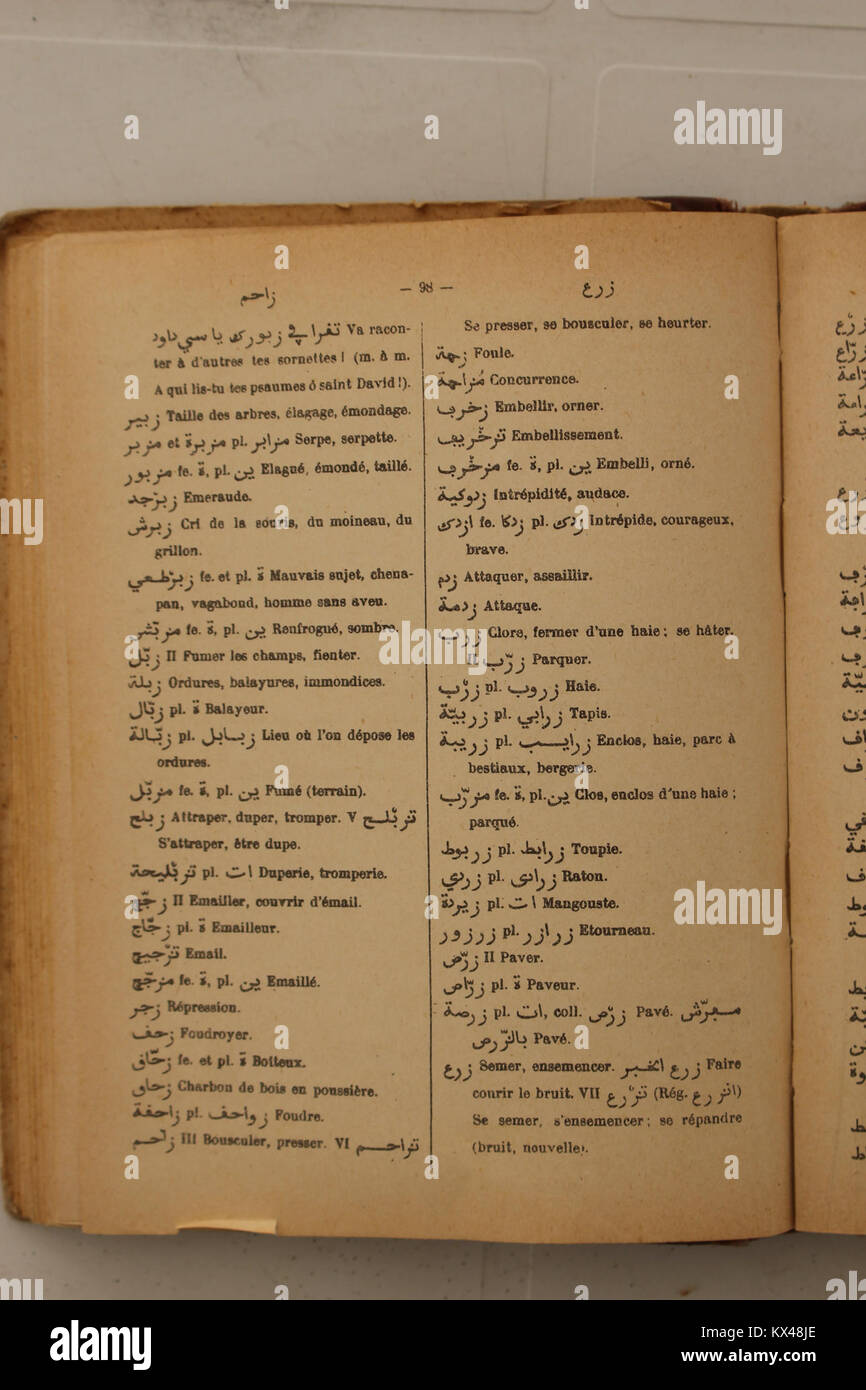 زاحم
— 98 —
زرع
تفرا في زبورك يا سي داود Va racon-
ter à d'autres tes sornettes! (m. à m.
A qui lis-tu tes psaumes ô saint David!).
زبير Taille des arbres, élagage, émondage.
منزبر et منزبرة pl. منزابر Serpe, serpette.
منزبور fe. ة, pl. ين Elagué, émondé, taillé.
زبرجد Emeraude.
زبرش Cri de la souris, du moineau, du
grillon.
زبرطعي fe. et pl. ة Mauvais sujet, chena-
pan, vagabond, homme sans aveu.
fe. ة, pl. ين Renfrogué, sombre.
زبّل II Fumer les champs, fienter.
زبلة Ordures, balayures, immondices.
زبّال pl. ة Balayeur.
زبّالة pl. زبابل Lieu où l'on dépose les
ordures.
منزبّل fe. ة, pl. ين Fumé (terrain).
زبلح Attraper, duper, tromper. V تزبّلح
S'attraper, être dupe.
تزبليحة pl. ات Duperie, tromperie.
زجّج II Emailler, couvrir d'émail.
زجّاج pl. ة Emailleur.
تزجيج Email.
منزجّج fe. ة, pl. ين Emaillé.
زجر Répression.
زحف Foudroyer.
زحّاف fe. et pl. ة Boiteux.
زحاف Charbon de bois en poussière.
زاحفة pl. زواحف Foudre.
زاحم III Bousculer, presser. VI تزاحم
Se presser, se bousculer, se heurter.
زحمة Foule.
مزاحمة Concurrence.
زخرف Embellir, orner.
تزخريف Embellissement.
منزخرف fe. ة, pl. ين Embelli, orné.
زدوكية Intrépidité, audace.
ازدك fe. زدكا pl. زدك Intrépide, courageux,
brave.
زدم Attaquer, assaillir.
زدمة Attaque.
زرب Clore, fermer d'une haie; se hâter.
II زرّب Parquer.
زرب pl. زروب Haie.
زربيّة pl. زرابي Tapis.
زريبة pl. زرايب Enclos, haie, parc à
bestiaux, bergerie.
منزرّب fe. ة, pl. ين Clos, enclos d'une haie;
parqué.
زربوط pl. زرابط Toupie.
زردي pl. زرادى Raton.
زيردة pl. ات Mangouste.
زرزور pl. زرازر Etourneau.
زرّص II Paver.
زرّاص pl. ة Paveur.
زرصة pl. ات, coll. زرّص Pavé. مبرّش
بالزّرص Pavé.
زرع Semer, ensemencer. زرع الخبر Faire
courir le bruit. VII تزرع (Rég. انزرع)
Se semer, s'ensemencer; se répandre
(bruit, nouvelle).
alamy
Image ID: KX48JE
www.alamy.com